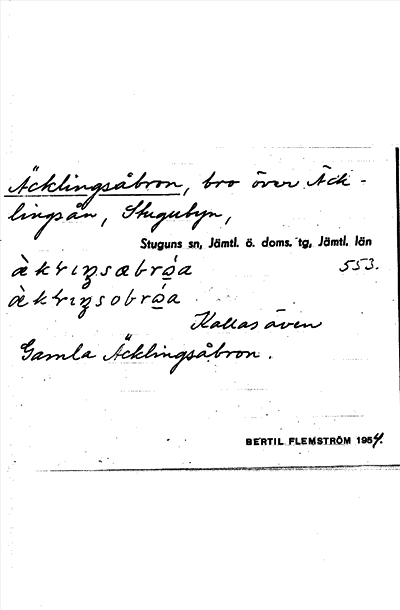 Äcklingsåbron, bro över Äck-
lingsån, Stugubyn,
Stuguns sn, Jämtl. ö. doms. tg, Jämtl. län
553.
Kallas även
Gamla Äcklingsåbron.
BERTIL FLEMSTRÖM 1954.